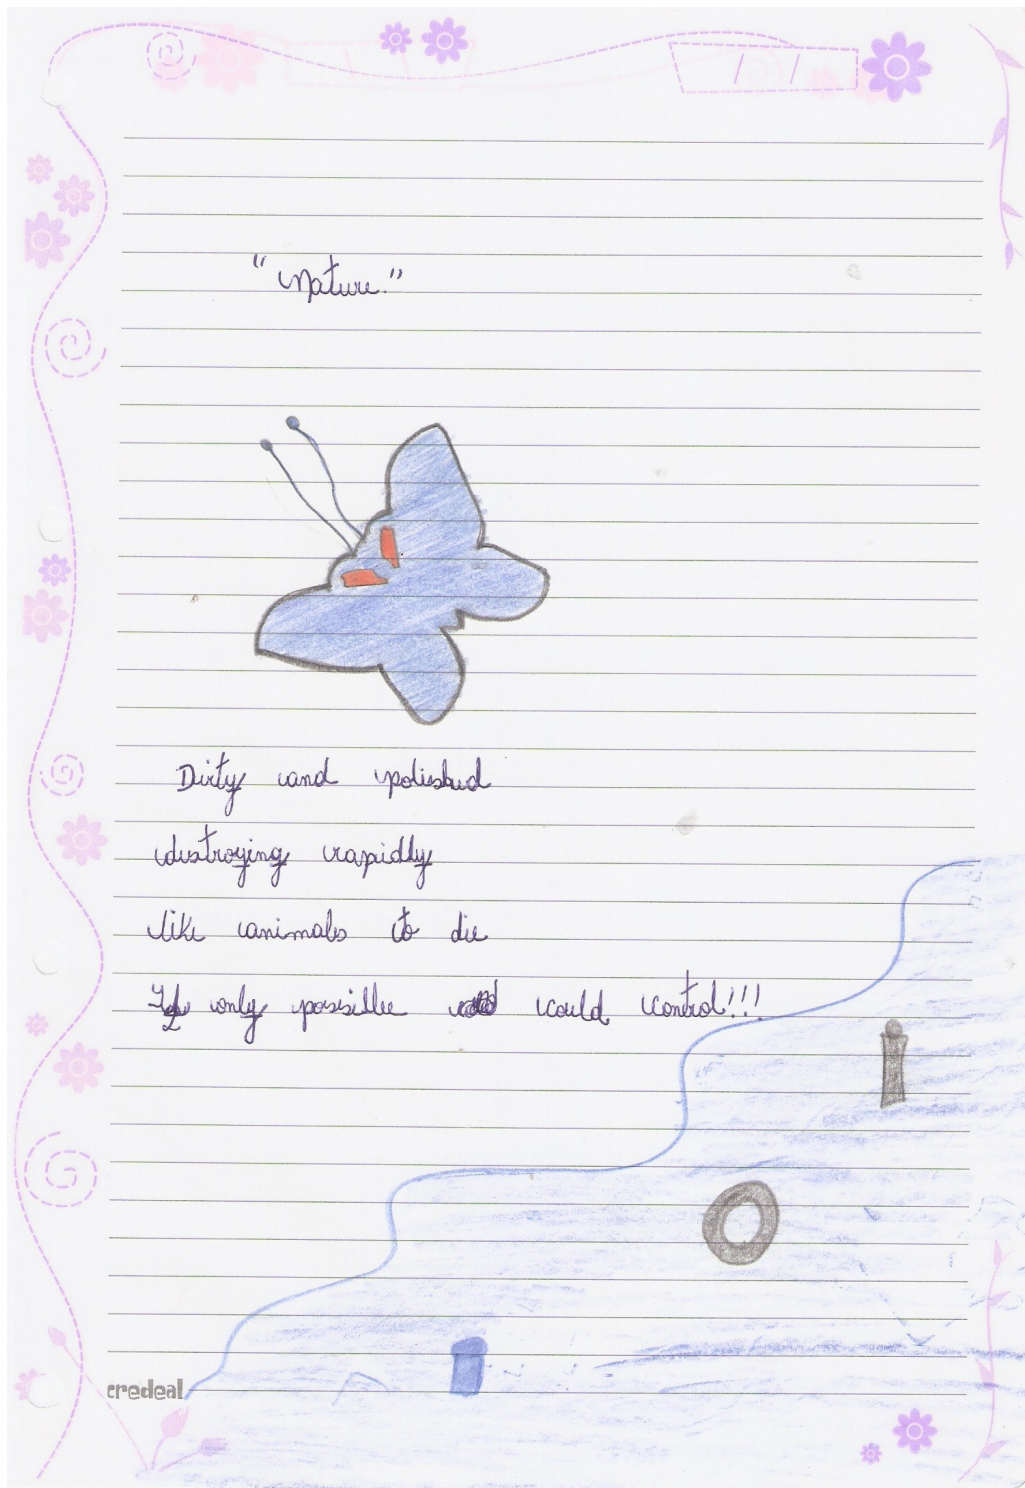 "Nature."
Dirty and polished
destroying rapidly
like animals to die
If only possible could control!!!
credeal